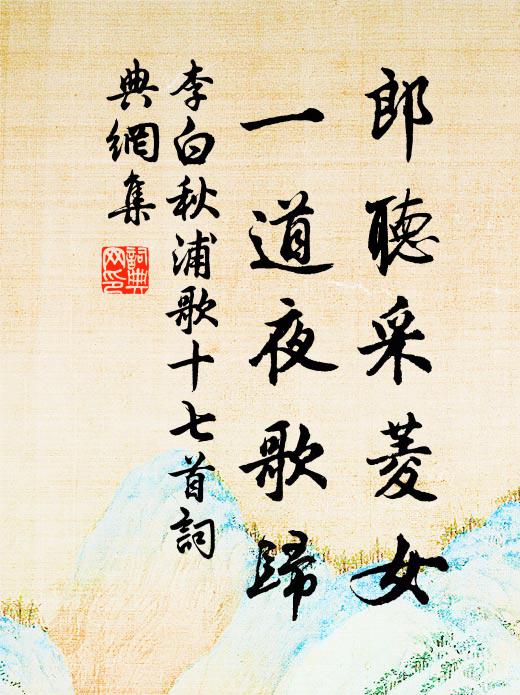 郎聽采菱女
一道夜歌歸
李白秋浦歌十七首詞
典網集
詞典
网印